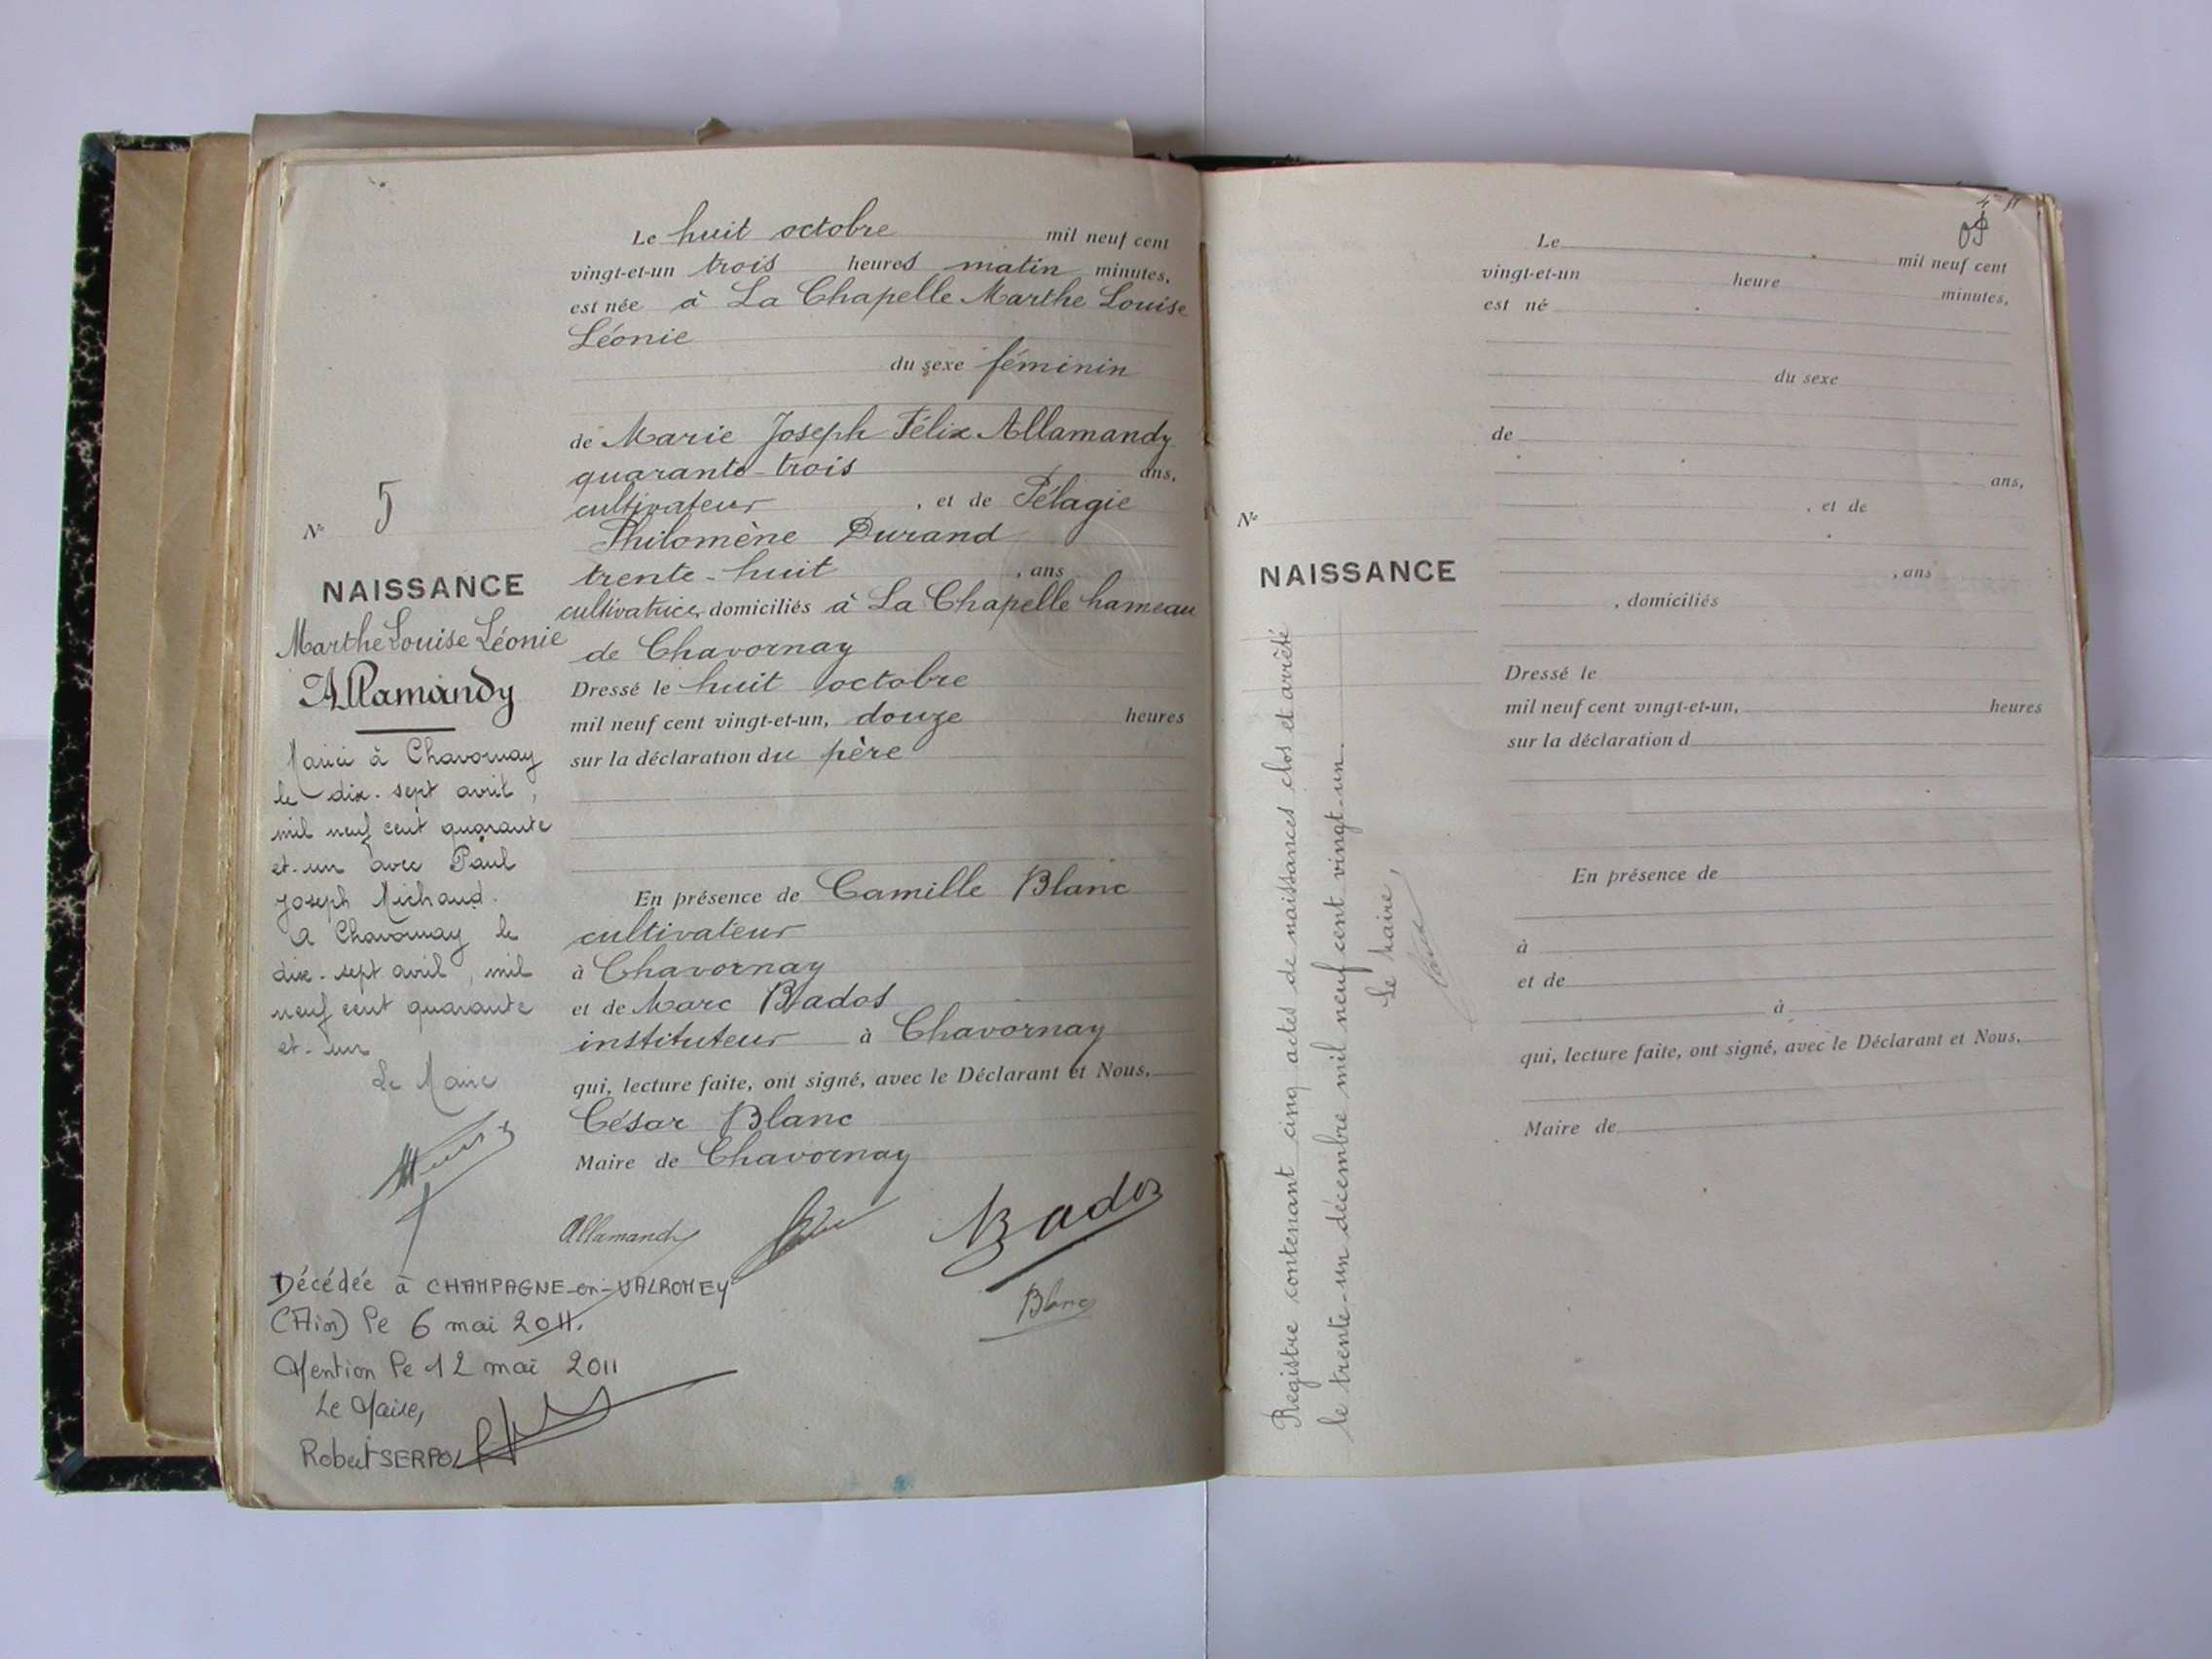 N° 5
NAISSANCE
Marthe Louise Léonie
Allamandy
Mariée à Chavornay
le dix-sept avril,
mil neuf cent quarante
et-un avec Paul
Joseph Michaud.
A Chavornay le
dix-sept avril, mil
neuf cent quarante
et-un
Le Maire
Décédée à CHAMPAGNE-en-VALROMEY
(Ain) le 6 mai 2011.
Mention le 12 mai 2011
Le Maire,
Robert SERPOL
Le huit octobre mil neuf cent
vingt-et-un trois heures matin minutes,
est née à La Chapelle Marthe Louise
Léonie
du sexe féminin
de Marie Joseph Félix Allamandy
quarante-trois ans,
cultivateur, et de Pélagie
Philomène Durand
trente-huit, ans
cultivatrice, domiciliés à La Chapelle hameau
de Chavornay
Dressé le huit octobre
mil neuf cent vingt-et-un, douze heures
sur la déclaration du père
En présence de Camille Blanc
cultivateur
à Chavornay
et de Marc Bados
instituteur à Chavornay
qui, lecture faite, ont signé, avec le Déclarant et Nous,
César Blanc
Maire de Chavornay
Allamandy
Bados
Blanc
N°
NAISSANCE
Registre contenant cinq actes de naissances clos et arrêté
le trente-un décembre mil neuf cent vingt-un.
Le Maire,
Le mil neuf cent
vingt-et-un heure minutes,
est né
du sexe
de
ans,
, et de
, ans
, domiciliés
Dressé le
mil neuf cent vingt-et-un, heures
sur la déclaration d
En présence de
à
et de
à
qui, lecture faite, ont signé, avec le Déclarant et Nous,
Maire de